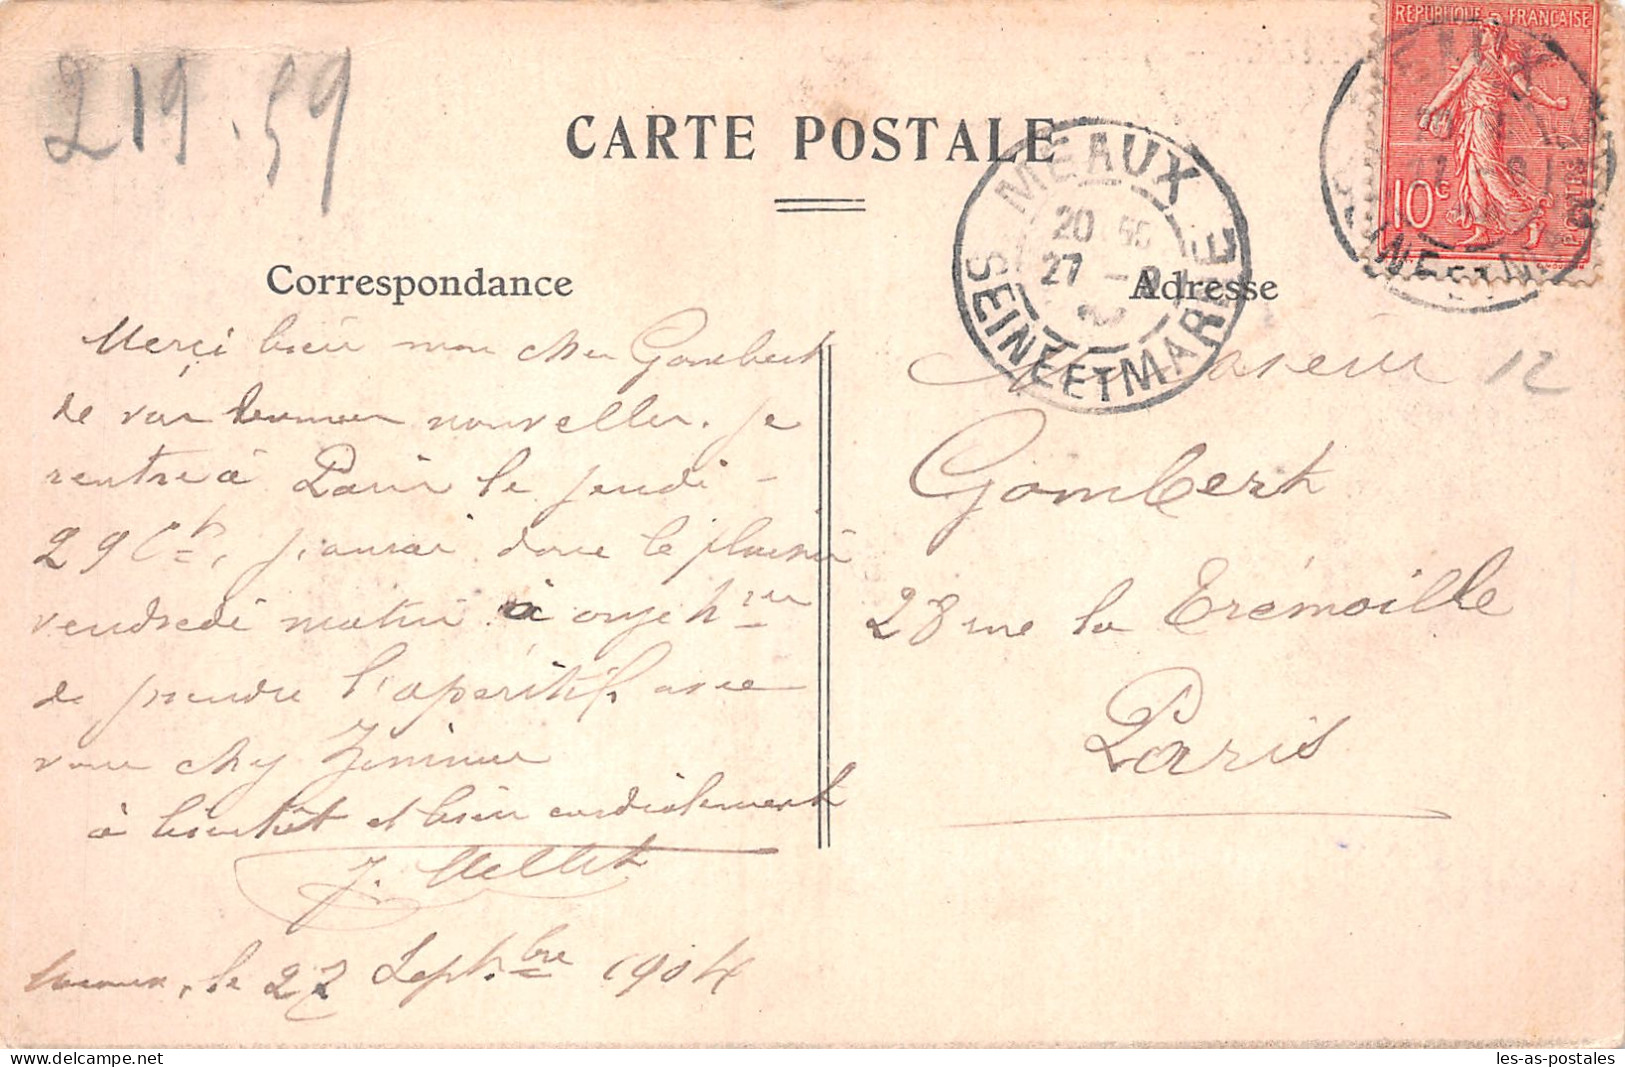 219.59
CARTE POSTALE
RÉPUBLIQUE FRANÇAISE
10c
POSTES
MEAUX
20
27 - 9
SEINE ET MARNE
Correspondance
Adresse
Merçi bien mon cher Gombert
de vos bonnes nouvelles. Je
rentre à Paris le jeudi
29 Ct, j'aurai donc le plaisir
vendredi matin à onze hres
de prendre l'apéritif avec
vous chez Zimmer
à bientôt et bien cordialement
J.
Meaux, le 27 Septbre 1904
Monsieur
12
Gombert
28 rue la Trémoille
Paris
les-as-postales